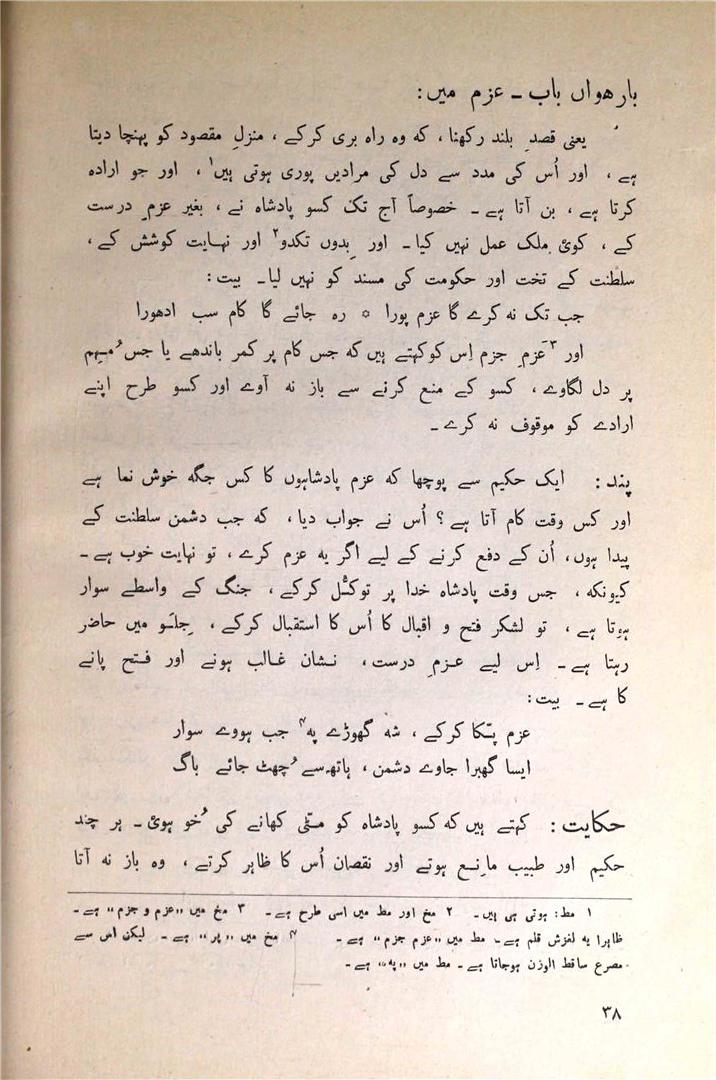 بارھواں باب ۔ عزم میں :
یعنی قصدِ بلند رکھنا ، کہ وہ راہ بری کرکے ، منزلِ مقصود کو پہنچا دیتا
ہے ، اور اُس کی مدد سے دل کی مرادیں پوری ہوتی ہیں۱ ، اور جو ارادہ
کرتا ہے ، بن آتا ہے ۔ خصوصاً آج تک کسو پادشاہ نے ، بغیر عزمِ درست
کے ، کوئی مِلک عمل نہیں کیا ۔ اور بِدوں تکدو۲ اور نہایت کوشش کے ،
سلطنت کے تخت اور حکومت کی مسند کو نہیں لیا ۔ بیت :
جب تک نہ کرے گا عزم پورا * رہ جائے گا کام سب ادھورا
اور ۳عَزمِ جزم اِس کو کہتے ہیں کہ جس کام پر کمر باندھے یا جس مُہِم
پر دل لگاوے ، کسو کے منع کرنے سے باز نہ آوے اور کسو طرح اپنے
ارادے کو موقوف نہ کرے ۔
پند : ایک حکیم سے پوچھا کہ عزم پادشاہوں کا کس جگہ خوش نما ہے
اور کس وقت کام آتا ہے ؟ اُس نے جواب دیا ، کہ جب دشمن سلطنت کے
پیدا ہوں ، اُن کے دفع کرنے کے لیے اگر یہ عزم کرے ، تو نہایت خوب ہے ۔
کیونکہ ، جس وقت پادشاہ خدا پر توکّل کرکے ، جنگ کے واسطے سوار
ہوتا ہے ، تو لشکر فتح و اقبال کا اُس کا استقبال کرکے ، جِلَو میں حاضر
رہتا ہے ۔ اِس لیے عزمِ درست ، نشان غالب ہونے اور فتح پانے
کا ہے ۔ بیت :
عزم پکّا کرکے ، شہ گھوڑے پہ۴ جب ہووے سوار
ایسا گھبرا جاوے دشمن ، ہاتھ سے چُھٹ جائے باگ
حکایت : کہتے ہیں کہ کسو پادشاہ کو مٹّی کھانے کی خُو ہوئی ۔ ہر چند
حکیم اور طبیب مانع ہوتے اور نقصان اُس کا ظاہر کرتے ، وہ باز نہ آتا
۱ مط : ہوتی ہی ہیں ۔ ۲ مخ اور مط میں اسی طرح ہے ۔ ۳ مخ میں ,,عزم و جزم،، ہے ۔
ظاہرا یہ لغزش قلم ہے ۔ مط میں ,,عزم جزم،، ہے ۔ ۴ مخ میں ,,پر،، ہے ۔ لیکن اس سے
مصرع ساقط الوزن ہوجاتا ہے ۔ مط میں ,,پہ،، ہے ۔
۳۸